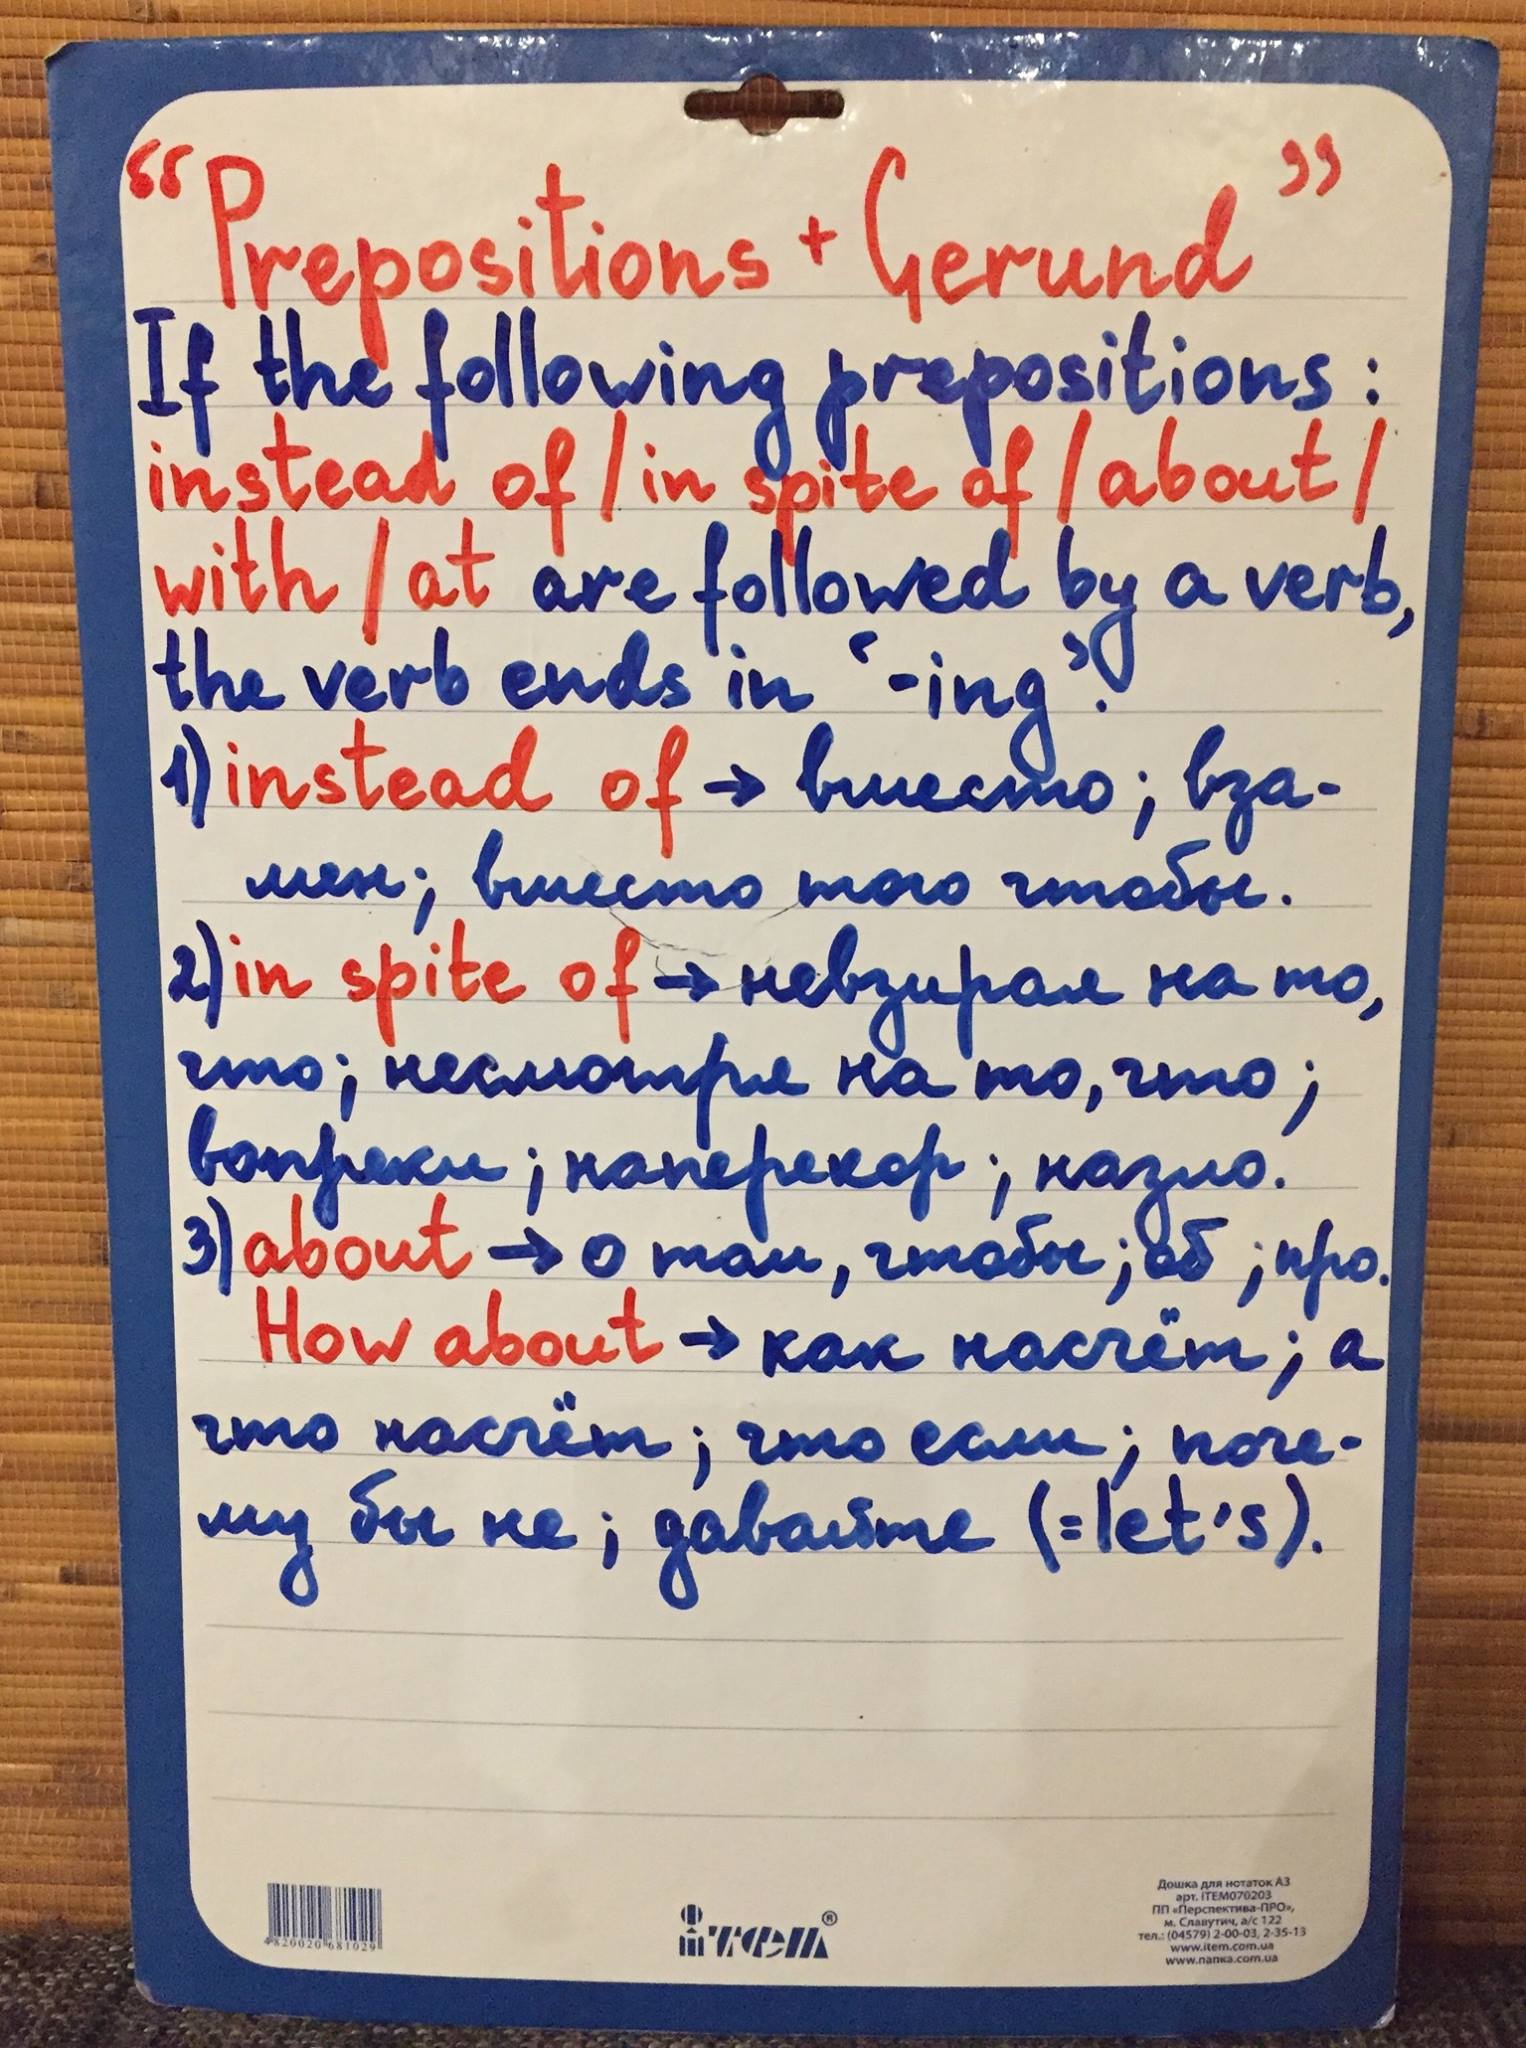 “Prepositions + Gerund”
If the following prepositions:
instead of / in spite of / about /
with / at are followed by a verb,
the verb ends in ‘-ing’.
1) instead of → вместо; вза-
мен; вместо того чтобы.
2) in spite of → невзирая на то,
что; несмотря на то, что;
вопреки; наперекор; назло.
3) about → о том, чтобы; об; про.
How about → как насчёт; а
что насчёт; что если; поче-
му бы не; давайте (=let's).
4820020681029
iтем®
Дошка для нотаток А3
арт. ITEM070203
ПП «Перспектива-ПРО»,
м. Славутич, а/с 122
тел.: (04579) 2-00-03, 2-35-13
www.item.com.ua
www.папка.com.ua